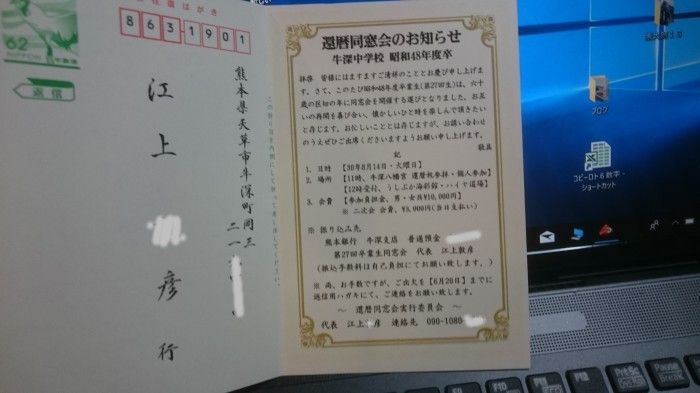 往復はがき
62
NIPPON
8631901
返信
熊本県天草市牛深町岡三
二一
江上
彦 行
還暦同窓会のお知らせ
牛深中学校 昭和48年度卒
拝啓 皆様にはますますご清祥のこととお慶び申し上げま
す。さて、このたび昭和48年度卒業生(第27回生)は、六十
歳の区切の年に同窓会を開催する運びとなりました。お互
いの再開を喜び合い、懐かしいひと時を楽しんで頂きたい
と存じます。お忙しいこととは存じますが、お誘い合わせ
のうえぜひご出席くださいますようお願い申し上げます。
敬具
記
1. 日時 【30年8月14日・火曜日】
2. 場所 【11時、牛深八幡宮 還暦祝参拝・個人参加】
【12時受付、うしぶか海彩館・ハイヤ道場】
3. 会費 【参加負担金、男・女共¥10,000円】
※ 二次会 会費、¥3,000円(当日支払い)
※ 振り込み先
熊本銀行 牛深支店 普通預金
第27回卒業生同窓会 代表 江上敦彦
(振込手数料は自己負担にてお願い致します。)
※ 尚、お手数ですが、ご出欠を【6月20日】までに
返信用ハガキにて、ご連絡をお願い致します。
~ 還暦同窓会実行委員会 ~
代表 江上 彦 連絡先 090-1080
ブログ
コピーロト6数字 -
ショートカット